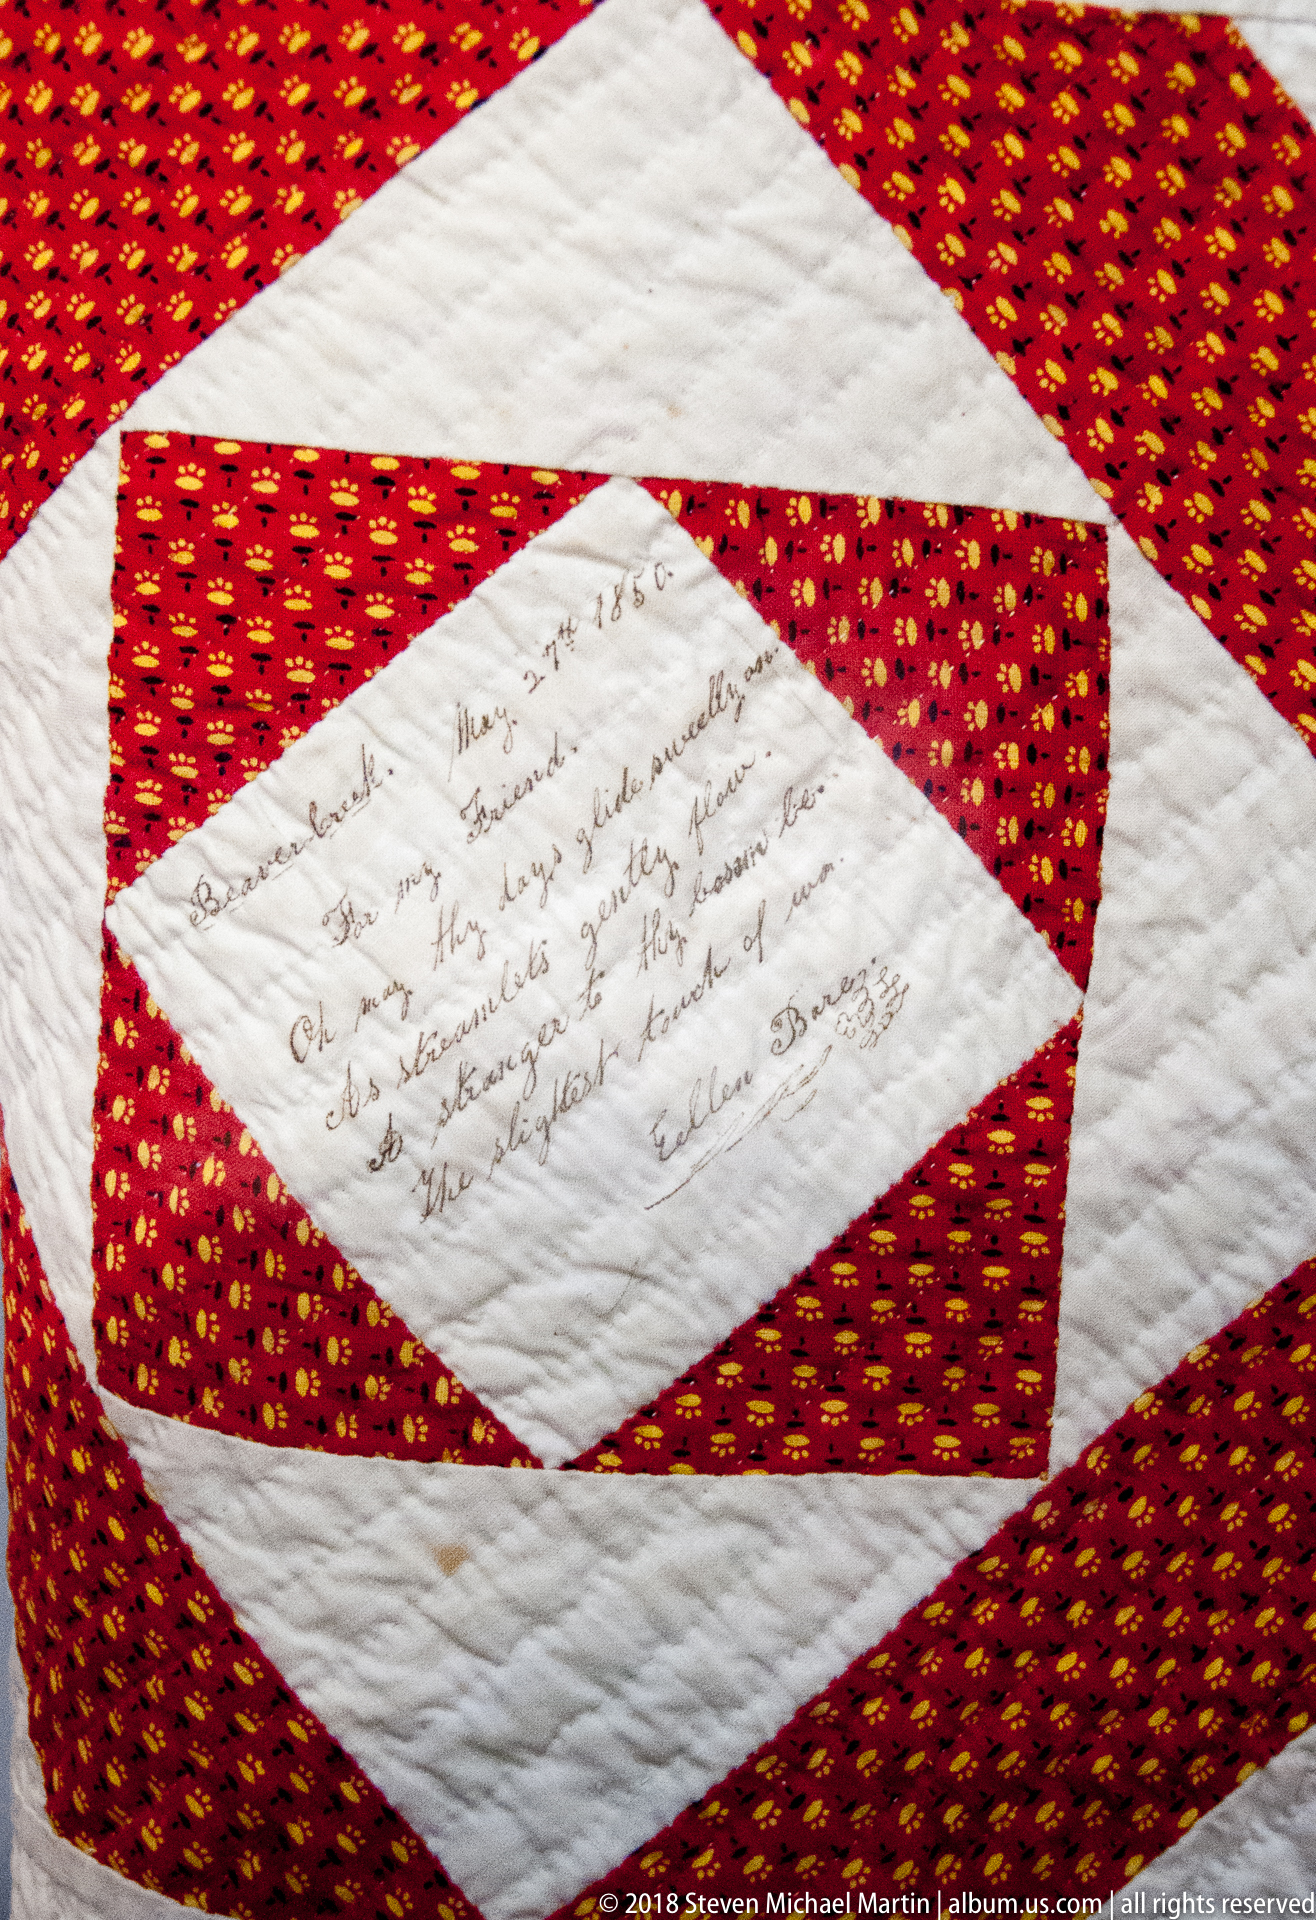 Beaver creek. May. 27th 1850.
For my Friend.
Oh may thy days glide sweetly on.
As streamlets gently flow.
A stranger to thy bosom be.
The slightest touch of wo.
Eellen Barez.
© 2018 Steven Michael Martin | album.us.com | all rights reserved